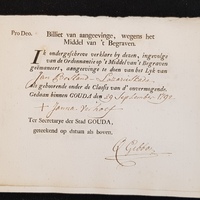 Pro Deo.
Billiet van aangeevinge, wegens het
Middel van 't Begraven.
IK ondergeschreven verklare by dezen, ingevolge
van de Ordonnantie op 't Middel van 't Begraven
geëmaneert, aangeevinge te doen van het Lyk van
Jan
als gehoorende onder de Classis van d' onvermogende.
Gedaan binnen GOUDA den 29 September 1792
Ter Secretarye der Stad GOUDA,
geteekend op datum als boven,